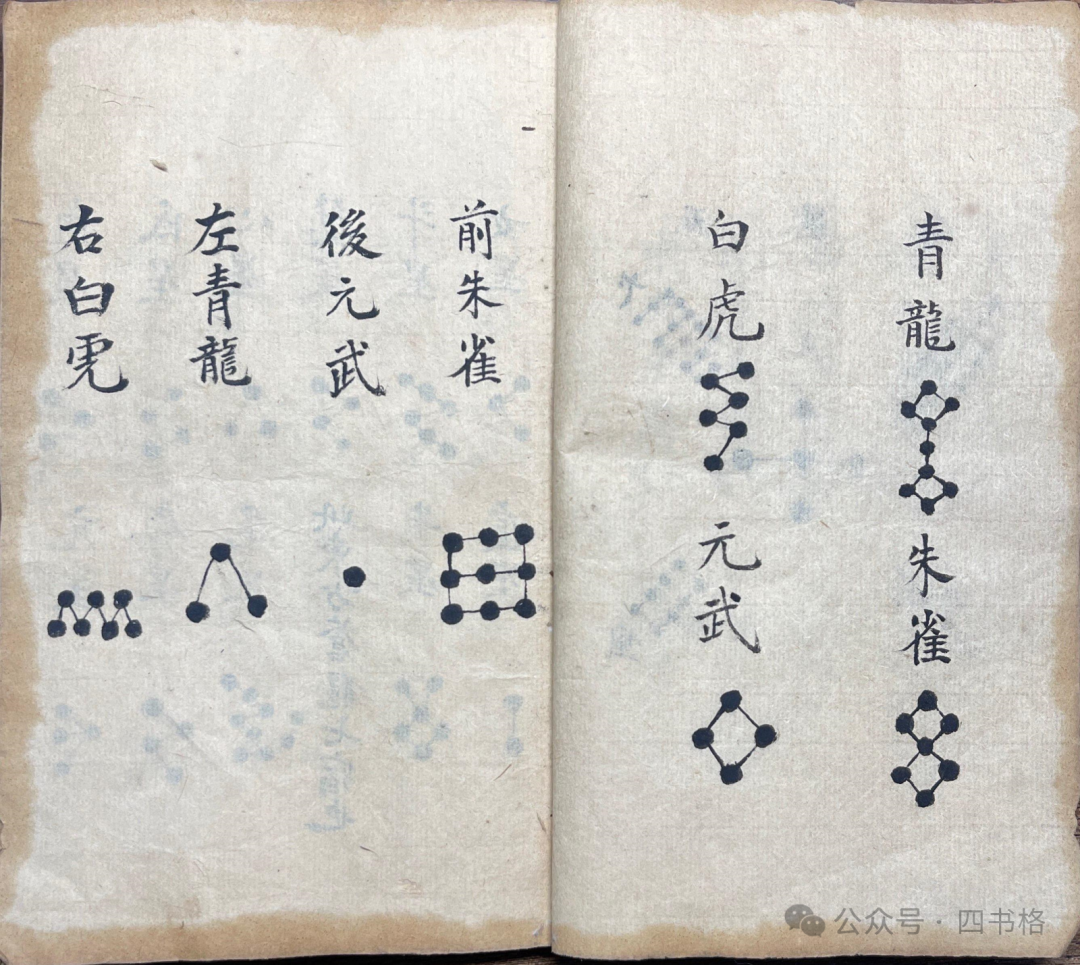 青龍
朱雀
白虎
元武
前朱雀
後元武
左青龍
右白虎
公众号·四书格